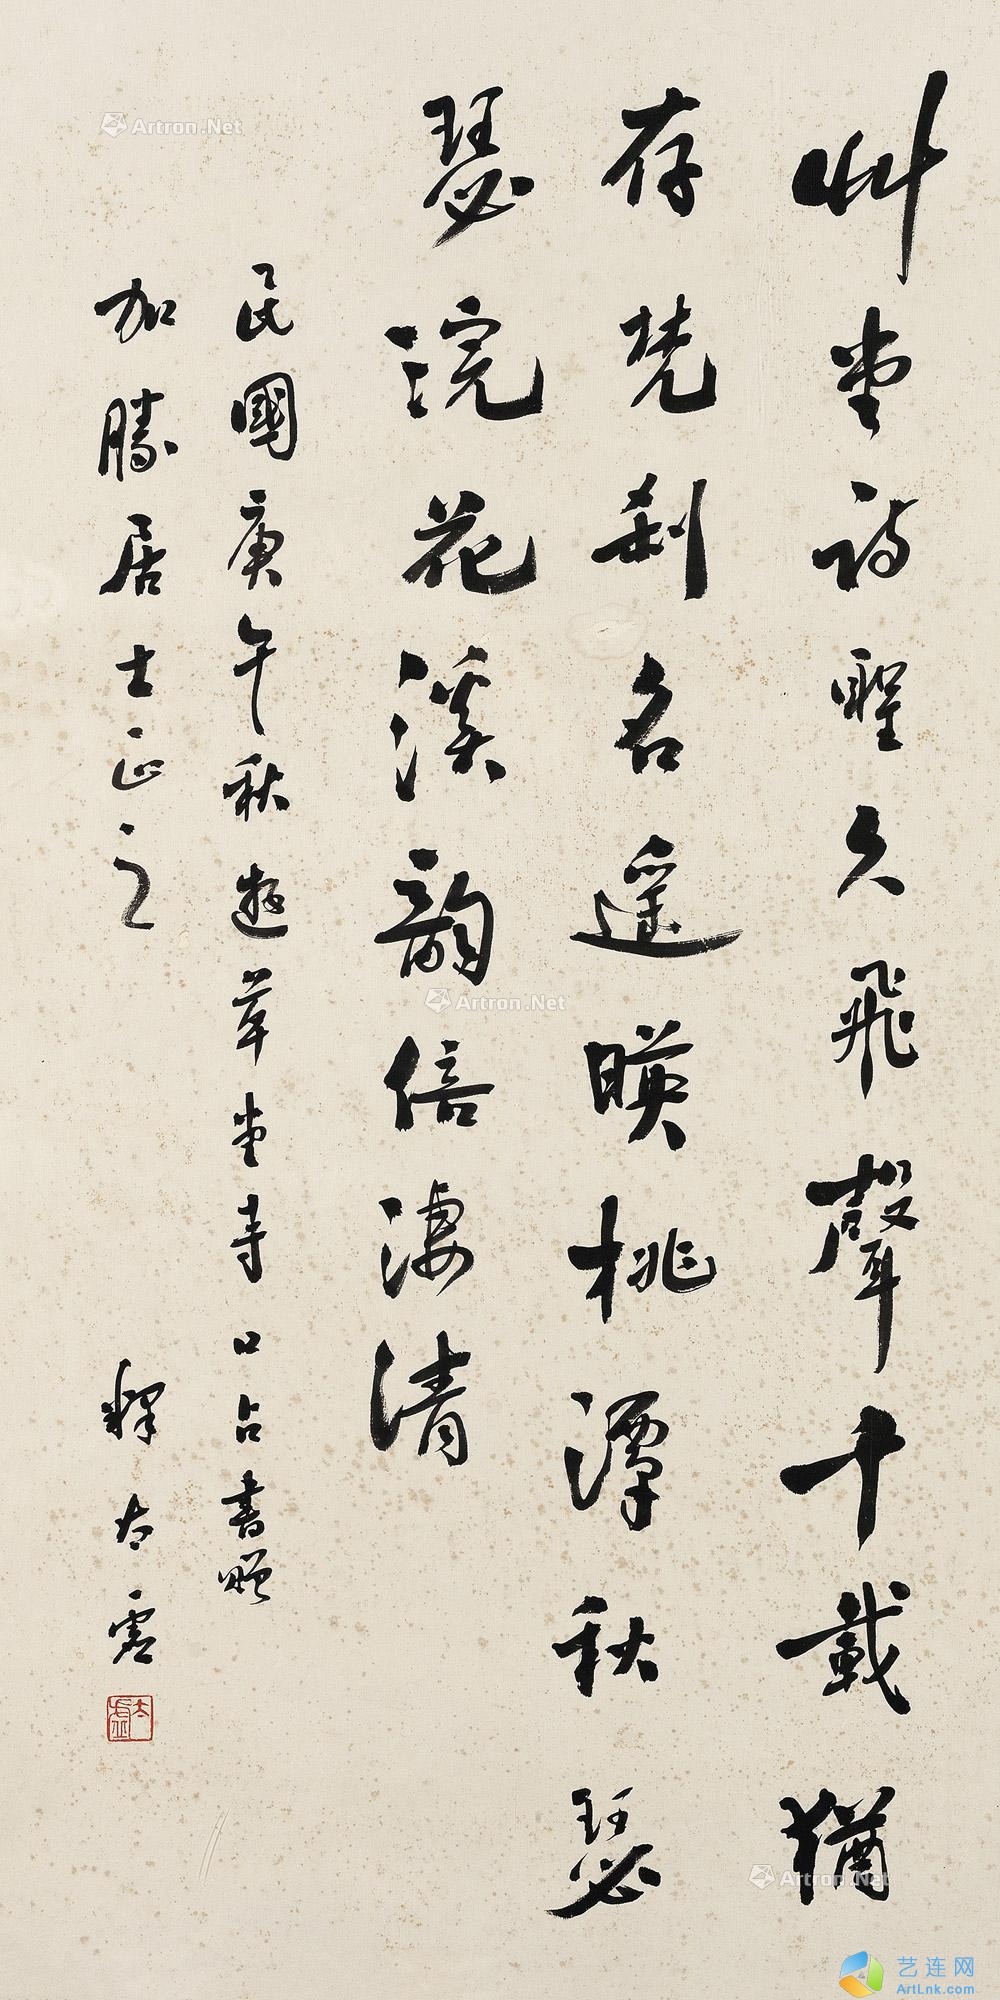 艸堂詩聖久飛聲十載猶
存梵刹名遥暎桃潭秋瑟
瑟浣花溪韻倍淒清
民國庚午秋遊草堂寺口占書贈
加勝居士正之
釋太虛
太虛
Artron.Net
Artron.Net
Artron.Net
艺连网
ArtLnk.com